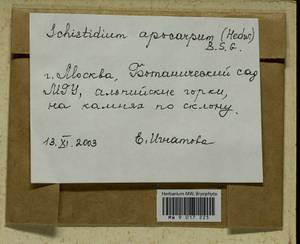 Schistidium apocarpum (Hedw.)
B.S.G.
г. Москва, Ботанический сад
МГУ, альпийские горки,
на камнях по склону.
13.XI.2003 Е. Игнатова
Herbarium MW, Bryophyta
MW 9 017 225